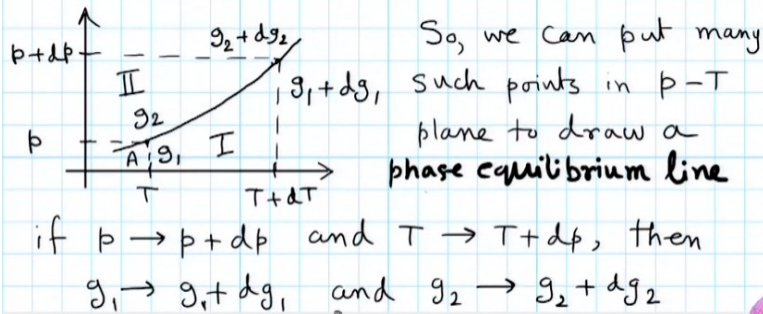 p+dp
g₂+dg₂
II
g₁+dg₁
g₂
p
A g₁
I
T
T+dT
So, we can put many
such points in p-T
plane to draw a
phase equilibrium line
if p → p+dp and T → T+dp, then
g₁ → g₁+dg₁ and g₂ → g₂+dg₂